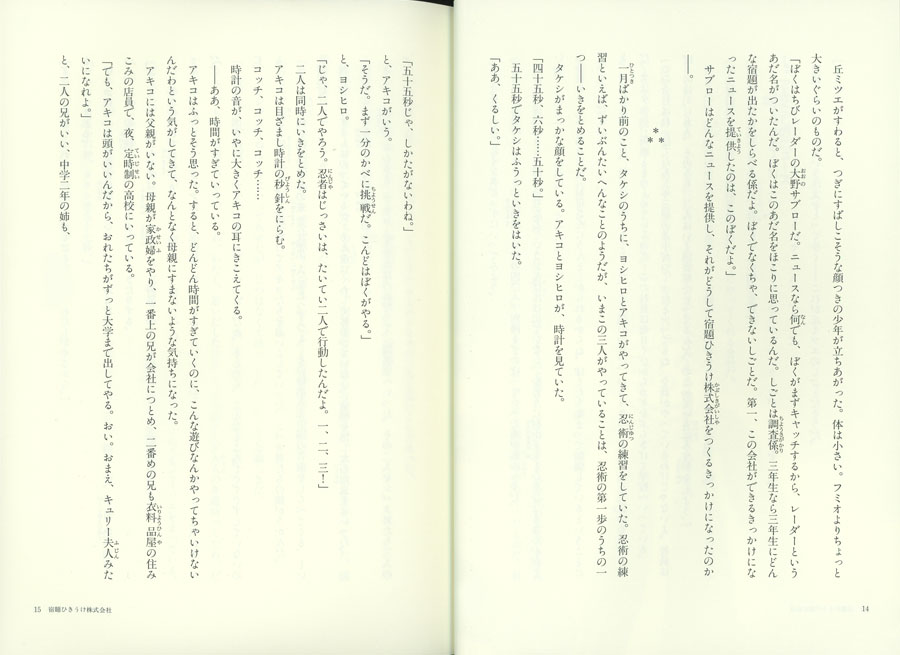 丘ミツエがすわると、つぎにすばしこそうな顔つきの少年が立ちあがった。体は小さい。フミオよりちょっと
大きいぐらいのものだ。
「ぼくはちびレーダーの大野サブローだ。ニュースなら何でも、ぼくがまずキャッチするから、レーダーという
あだ名がついたんだ。ぼくはこのあだ名をほこりに思っているんだ。しごとは調査係。三年生なら三年生にどん
な宿題が出たかをしらべる係だよ。ぼくでなくちゃ、できないしごとだ。第一、この会社ができるきっかけにな
ったニュースを提供したのは、このぼくだよ。」
サブローはどんなニュースを提供し、それがどうして宿題ひきうけ株式会社をつくるきっかけになったのか
――。
＊
＊＊
一月ばかり前のこと、タケシのうちに、ヨシヒロとアキコがやってきて、忍術の練習をしていた。忍術の練
習といえば、ずいぶんたいへんなことのようだが、いまこの三人がやっていることは、忍術の第一歩のうちの一
つ――いきをとめることだ。
タケシがまっかな顔をしている。アキコとヨシヒロが、時計を見ていた。
「四十五秒、六秒……五十秒。」
五十五秒でタケシはふうっといきをはいた。
「ああ、くるしい。」
14
「五十五秒じゃ、しかたがないわね。」
と、アキコがいう。
「そうだ。まず一分のかべに挑戦だ。こんどはぼくがやる。」
と、ヨシヒロ。
「じゃ、二人でやろう。忍者はじっさいは、たいてい二人で行動したんだよ。一、二、三！」
二人は同時にいきをとめた。
アキコは目ざまし時計の秒針をにらむ。
コッチ、コッチ、コッチ……
時計の音が、いやに大きくアキコの耳にきこえてくる。
――ああ、時間がすぎていっている。
アキコはふっとそう思った。すると、どんどん時間がすぎていくのに、こんな遊びなんかやってちゃいけない
んだわという気がしてきて、なんとなく母親にすまないような気持ちになった。
アキコには父親がいない。母親が家政婦をやり、一番上の兄が会社につとめ、二番めの兄も衣料品屋の住み
こみの店員で、夜、定時制の高校にいっている。
「でも、アキコは頭がいいんだから、おれたちがずっと大学まで出してやる。おい。おまえ、キュリー夫人みた
いになれよ。」
と、二人の兄がいい、中学二年の姉も、
15 宿題ひきうけ株式会社